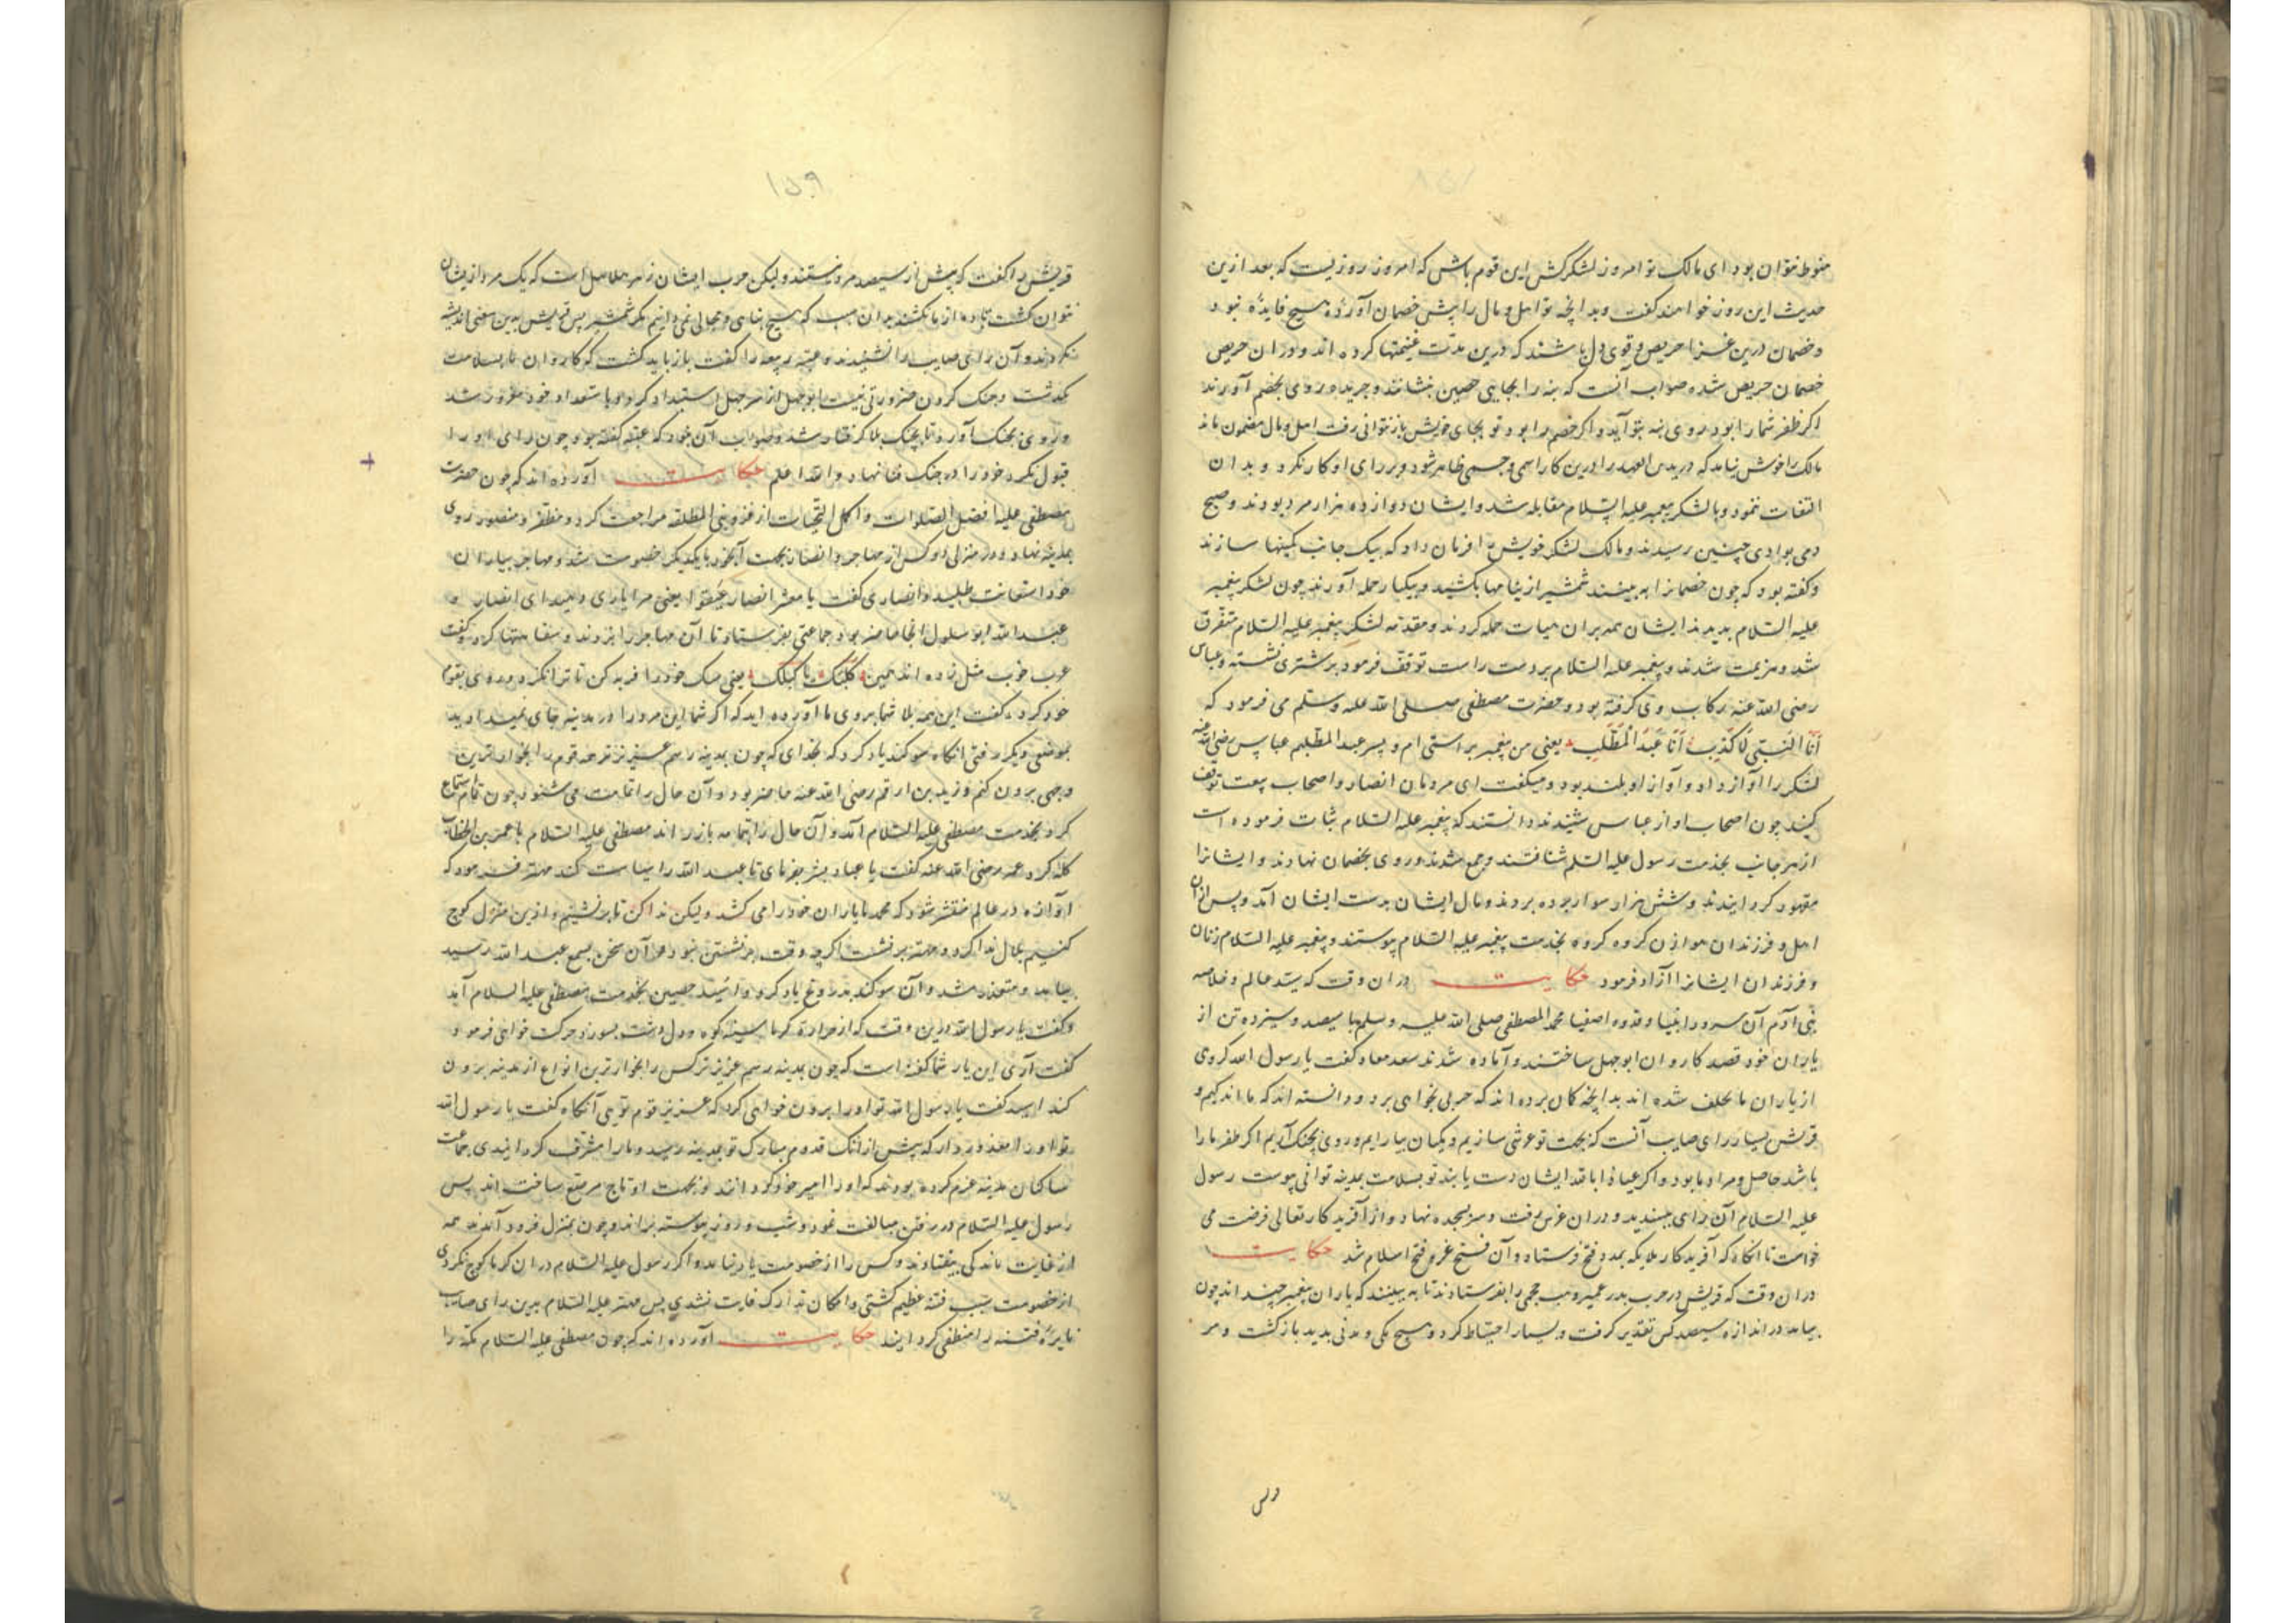 منوط نتوان بود ای مالک تو امروز لشکرکش این قوم باش که امروز روزیست که بعد ازین
حدیث این روز خواهند گفت و بدانچه تو اهل و مال را پیش خصمان آوردهٔ هیچ فایده نبود
و خصمان درین غزا حریص و قوی دل باشند که درین مدت غنیمتها کرده اند و در ان حریص
خصمان حریص شده صواب آنست که بنه را بجایی حصین بنشانند و جریده روی بخصم آورند
اکر ظفر شما را بود روی بنه بتو آید و اکر خصم را بود تو بجای خویش باز توانی رفت اهل و مال مضمون ماند
مالک را خوش نیامد که درید بن الصمه را درین کار اسمی و جسمی ظاهر شود و بر رای او کار نکرد و بدان
التفات ننمود و با لشکر پیغمبر علیه السلام مقابله شد و ایشان دوازده هزار مرد بودند و صبح
دمی بوادی حنین رسیدند و مالک لشکر خویش را فرمان داد که بیک جانب کمینها سازند
و گفته بود که چون خصمانرا به بینند شمشیر از نیامها بکشید و بیکبار حمله آورند چون لشکر پیغمبر
علیه السلام بدیدند ایشان همه بران هیات حمله کردند و مقدمه لشکر پیغمبر علیه السلام متفرق
شد و هزیمت شدند و پیغمبر علیه السلام بر دست راست توقف فرمود بر شتری نشسته و عباس
رضی الله عنه رکاب وی گرفته بود و حضرت مصطفی صلی الله علیه وسلم می فرمود که
أنا النبی لا کذب أنا عبد المطلب یعنی من پیغمبر براستی ام و پسر عبد المطلبم عباس رضی الله عنه
لشکر را آواز داد و آواز او بلند بود و میگفت ای مردمان انصار و اصحاب بیعت توقف
کنید چون اصحاب اواز عباس شنیدند دانستند که پیغمبر علیه السلام ثبات فرموده است
از هر جانب بخدمت رسول علیه السلم شتافتند و جمع شدند و روی بخصمان نهادند و ایشانرا
مقهور کردانیدند و شش هزار سوار برده بردند و مال ایشان بدست ایشان آمد و پس ازان
اهل و فرزندان هوازن کروه کروه بخدمت پیغمبر علیه السلام پیوستند و پیغمبر علیه السلام زنان
و فرزندان ایشانرا آزاد فرمود حکایت دران وقت که سید عالم و خلاصه
بنی آدم آن سرور انبیا و قدوه اصفیا محمد المصطفی صلی الله علیه وسلم با سیصد و سیزده تن از
یاران خود قصد کاروان ابوجهل ساختند و آماده شدند سعد معاد گفت یا رسول الله کروی
از یاران ما تخلف شده اند بدانچه کمان برده اند که حربی نخواهی برد و دانسته اند که ما اندکیم و
قریش بسیار رای صایب آنست که بجهت تو عرشی سازیم و یکسان بیارایم و روی بجنک آریم اکر ظفر ما را
باشد حاصل و مراد ما بود و اکر عیاذا بالله ایشان دست یابند تو بسلامت بمدینه توانی پیوست رسول
علیه السلام آن رای پسندید و دران عرش رفت و سر بسجده نهاد و از آفریدکار تعالی نصرت می
خواست تا انکاه که آفریدکار ملایکه بمدد فتح فرستاد و آن فتح غرو فتح اسلام شد حکایت
دران وقت که قریش در حرب بدر عمیر وهب جمحی را بفرستادند تا به بیند که یاران پیغمبر چند اند چون
بیامد در اندازه سیصد کس تقدیر کرفت و بسیار احتیاط کرد و هیچ مکی و مدنی بدید باز کشت و مر
۱۵۹
قریش را گفت که بیش از سیصد مرد نیستند ولیکن حرب ایشان زهر هلاهل است که یک مرد از یشان
نتوان کشت تا ده از ما نکشند بدان سبب که هیچ پناهی و مجالی نمی دانیم مکر شمشیر پس قریش بدین سخن اندیشه
نکردند و آن رای صایب را نشنیدند و عتبه ربیعه را گفت باز باید کشت که کاروان ما بسلامت
بگذشت و جنک کردن ضرورتی نیست ابوجهل از سر جهل استبداد کرد و باستعداد خود مغرور شد
و روی بجنک آورد تا بچنک بلا کرفتار شد و صواب آن بود که عتبه گفته بود چون رای او را
قبول نکرد خود را در جنک فنا نهاد والله اعلم حکایت آورده اند که چون حضرت
مصطفی علیه افضل الصلوات و اکمل التحیات از غزو بنی المطلق مراجعت کرد و مظفر و منصور روی
بمدینه نهاد و در منزلی دو کس از مهاجر و انصار بجهت آبخور با یکدیکر خصومت شد و مهاجر بیاران
خود استعانت طلبید و انصاری گفت یا معشر انصار یعنی مرا یاری دهید ای انصار و
عبدالله ابو سلول انجا حاضر بود جماعتی بفرستاد تا آن مهاجر را بزدند و سفاهتها کرد و گفت
عرب خوب مثل زده اند سمن کلبک یاکلک یعنی سک خود را فربه کن تا ترا بخورد روی بقوم
خود کرد و گفت این همه بلا شما بروی ما آورده اید که اکر شما این مرد را در مدینه جای نمیدادید
بموضعی دیکر رفتی انکاه سوکند یاد کرد که بخدای که چون بمدینه رسم عزیزتر هر قوم را بخوارترین
وجهی برون کنم و زید بن ارقم رضی الله عنه حاضر بود و آن حال را تمامت می شنود چون تمام استماع
کرد بخدمت مصطفی علیه السلام آمد و آن حال را بتمامه باز راند مصطفی علیه السلام با عمر بن الخطاب
کله کرد عمر رضی الله عنه گفت یا عباد بشر بفرمای تا عبد الله را سیاست کند مهتر فرمود که
آوازه در عالم منتشر شود که محمد یاران خود را می کشد ولیکن ندا کن تا برنشینیم و ازین منزل کوچ
کنیم بلال ندا کرد و مهتر برنشست اکرچه وقت برنشستن نبود و آن سخن بسمع عبد الله رسید
بیامد و متعذر شد و آن سوکند بدروغ یاد کرد و اسید حصین بخدمت مصطفی علیه السلام آمد
و گفت یا رسول الله درین وقت که از حرارت کرما سینه کوه و دل دشت بسوزد حرکت خواهی فرمود
گفت آری این یار شما گفته است که چون بمدینه رسم عزیزترکس را بخوارترین انواع از مدینه برون
کند اسید گفت یا رسول الله تو او را برون خواهی کرد که عزیز قوم توی آنکاه گفت یا رسول الله
تو او را معذور دار که پیش از آنک قدوم مبارک تو بمدینه رسد و ما را مشرف کردانیدی جماعت
ساکنان مدینه عزم کرده بودند که او را امیر خود کردانند و بجهت او تاج مرصع ساخته اند پس
رسول علیه السلام در رفتن مبالغت نمود و شب و روز پیوسته براند و چون بمنزل فرود آمدند همه
از غایت ماندکی بیفتادند و کس را از خصومت یاد نیامد و اکر رسول علیه السلام دران کرما کوچ نکردی
از خصومت سبب فتنه عظیم کشتی و امکان تدارک فایت نشدی پس مهتر علیه السلام بدین رای صایب
نایره فتنه را منطفی کردانید حکایت آورده اند که چون مصطفی علیه السلام مکه را